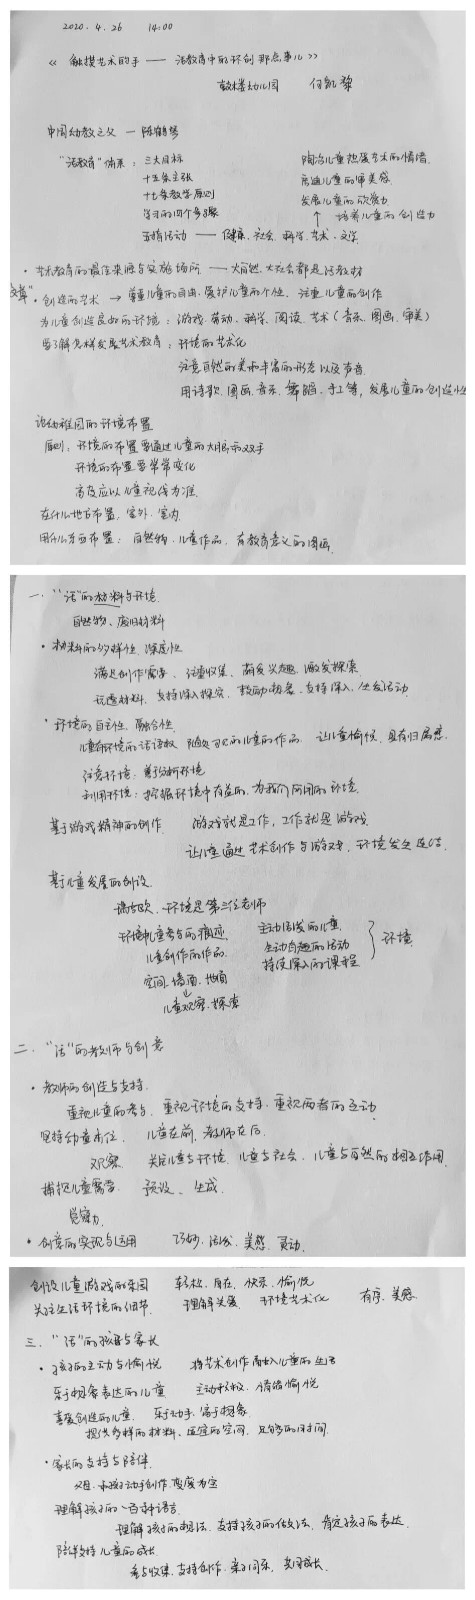 2020.4.26 14:00
《触摸艺术的手——活教育中的环创那点事儿》
鼓楼幼儿园 何凯黎
中国幼教之父—陈鹤琴
"活教育"体系：三大目标 陶冶儿童热爱艺术的情绪
十五条主张 启迪儿童的审美感
十七条教学原则 发展儿童的欣赏力
学习的四个步骤 ↑ 培养儿童的创造力
五指活动——健康、社会、科学、艺术、文学
·艺术教育的最佳来源与实施场所——大自然、大社会都是活教材
·创造的艺术→尊重儿童的自由、爱护儿童的个性、注重儿童的创作
为儿童创造良好的环境：游戏、劳动、科学、阅读、艺术（音乐、图画、审美）
要了解怎样发展艺术教育：环境的艺术化
注意自然的美和丰富的形态以及声音
用诗歌、图画、音乐、舞蹈、手工等，发展儿童的创造性
论幼稚园的环境布置
原则：环境的布置要通过儿童的大脑和双手
环境的布置要常常变化
高度应以儿童视线为准
在什么地方布置，室外、室内
用什么东西布置：自然物、儿童作品、有教育意义的图画
一、"活"的材料与环境
自然物、废旧材料
·材料的多样性、深度性
满足创作需要、注重收集、萌发兴趣、激发探索
玩透材料、支持深入探究、鼓励、支持深入、生发活动
·环境的自主性、融合性
儿童有环境的话语权 随处可见的儿童的作品 让儿童愉悦、具有归属感
注意环境：善分析环境
利用环境：挖掘环境中有益的、为我们所用的环境
基于游戏精神的创作 游戏就是工作，工作就是游戏
让儿童通过艺术创作与游戏、环境发生连结
基于儿童发展的创设
瑞吉欧、环境是第三位老师
环境中儿童参与的痕迹 主动活发的儿童
儿童创作的作品 生动有趣的活动 } 环境
空间、墙面、地面 持续深入的课程
↓
儿童观察、探索
二、"活"的教师与创意
·教师的创造与支持
重视儿童的参与、重视环境的支持、重视两者的互动
坚持幼童本位、儿童在前，教师在后
观察 关注儿童与环境、儿童与社会、儿童与自然的相互作用
捕捉儿童需要 预设、生成
觉察力
·创意的实现与运用 巧妙、活发、美感、灵动
创设儿童游戏的乐园 轻松、自在、快乐、愉悦
关注生活环境的细节 理解关爱 环境艺术化 有序、美感
三、"活"的孩子与家长
·孩子的主动与愉悦 将艺术创作融入儿童的生活
乐于想象表达的儿童 主动积极、情绪愉悦
喜爱创造的儿童 乐于动手、富于想象
提供多样的材料、适宜的空间、足够的时间
·家长的支持与陪伴
父母和孩子动手创作，变废为宝
理解孩子的一百种语言
理解孩子的想法、支持孩子的做法、肯定孩子的表达
陪伴支持儿童的成长
参与收集、支持创作、亲子同乐、共同成长